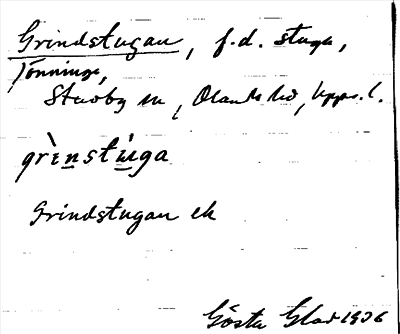 Grindstugan, f.d. stuga,
Tönninge,
Stavby sn, Olands hd, Upps. l.
grɩ̀nstùga
Grindstugan ek
Gösta Glad 1936